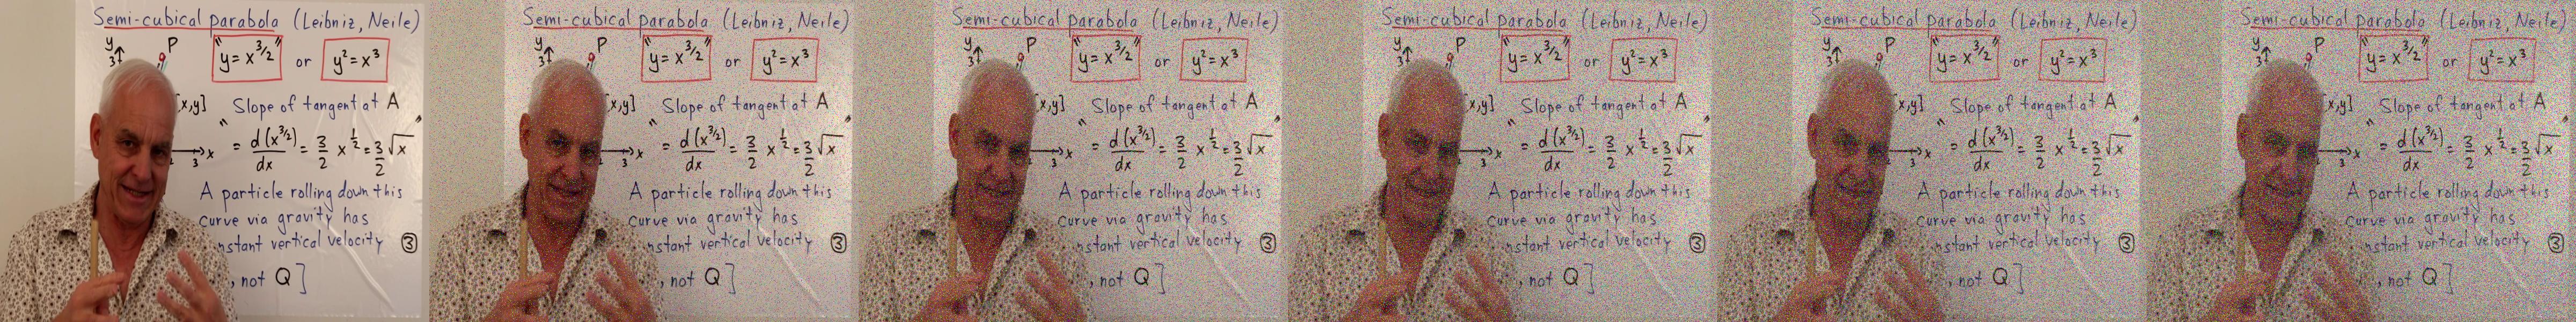 Semi-cubical parabola (Leibniz, Neile)
y P "y = x^3/2" or y² = x³
3
[x,y] Slope of tangent at A
" = d(x^3/2)/dx = 3/2 x^1/2 = 3/2 √x "
3 x
A particle rolling down this
curve via gravity has
nstant vertical velocity ③
, not Q ]
Semi-cubical parabola (Leibniz, Neile)
y P "y = x^3/2" or y² = x³
3
[x,y] Slope of tangent at A
" = d(x^3/2)/dx = 3/2 x^1/2 = 3/2 √x "
3 x
A particle rolling down this
curve via gravity has
nstant vertical velocity ③
, not Q ]
Semi-cubical parabola (Leibniz, Neile)
y P "y = x^3/2" or y² = x³
3
[x,y] Slope of tangent at A
" = d(x^3/2)/dx = 3/2 x^1/2 = 3/2 √x "
3 x
A particle rolling down this
curve via gravity has
nstant vertical velocity ③
, not Q ]
Semi-cubical parabola (Leibniz, Neile)
y P "y = x^3/2" or y² = x³
3
[x,y] Slope of tangent at A
" = d(x^3/2)/dx = 3/2 x^1/2 = 3/2 √x "
3 x
A particle rolling down this
curve via gravity has
nstant vertical velocity ③
, not Q ]
Semi-cubical parabola (Leibniz, Neile)
y P "y = x^3/2" or y² = x³
3
[x,y] Slope of tangent at A
" = d(x^3/2)/dx = 3/2 x^1/2 = 3/2 √x "
3 x
A particle rolling down this
curve via gravity has
nstant vertical velocity ③
, not Q ]
Semi-cubical parabola (Leibniz, Neile)
y P "y = x^3/2" or y² = x³
3
[x,y] Slope of tangent at A
" = d(x^3/2)/dx = 3/2 x^1/2 = 3/2 √x "
3 x
A particle rolling down this
curve via gravity has
nstant vertical velocity ③
, not Q ]